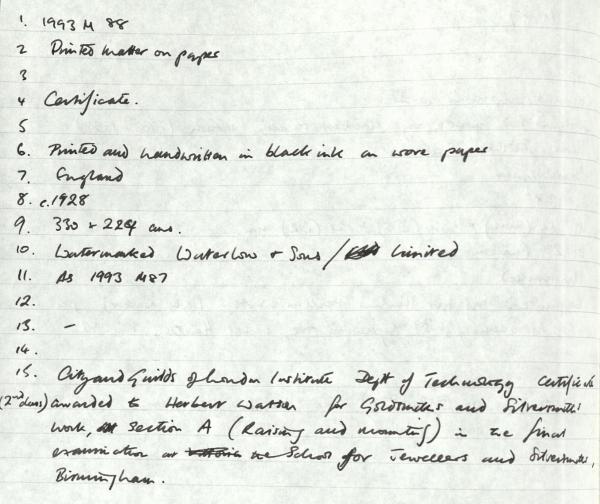 1. 1993 M 88
2 Printed matter on paper
3
4 Certificate.
5
6. Printed and handwritten in black ink on wove paper
7. England
8. c.1928
9. 330 x 224 cms.
10. Watermarked Waterlow + Sons / Limited
11. As 1993 M87
12.
13. –
14.
15. City and Guilds of London Institute Dept of Technology Certificate
(2nd class) awarded to Herbert Watson for Goldsmiths and Silversmiths
work, section A (Raising and mounting) in the final
examination at the School for Jewellers and Silversmiths,
Birmingham.